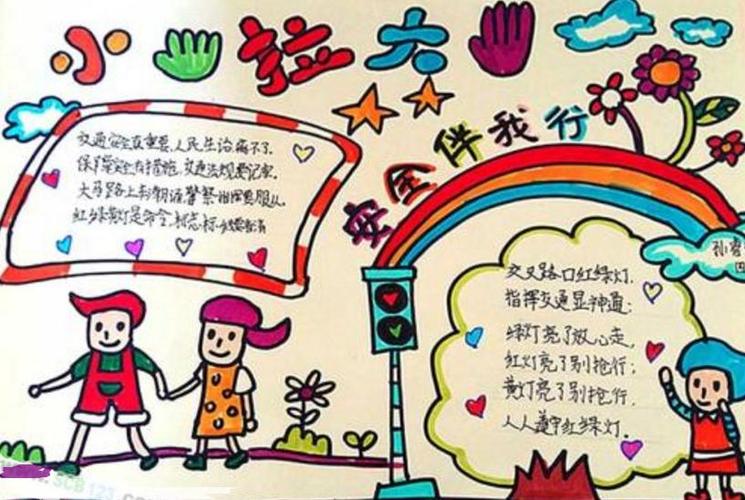 小 拉 大
安全伴我行
交通安全真重要,人民生活离不了.
保障安全有措施,交通法规要记牢.
大马路上车辆流,警察指挥要服从.
红绿黄灯是命令,标志标
孙
交叉路口红绿灯.
指挥交通显神通:
绿灯亮了放心走,
红灯亮了别抢行;
黄灯亮了别抢行.
人人遵守红绿灯.
SCB123.CO